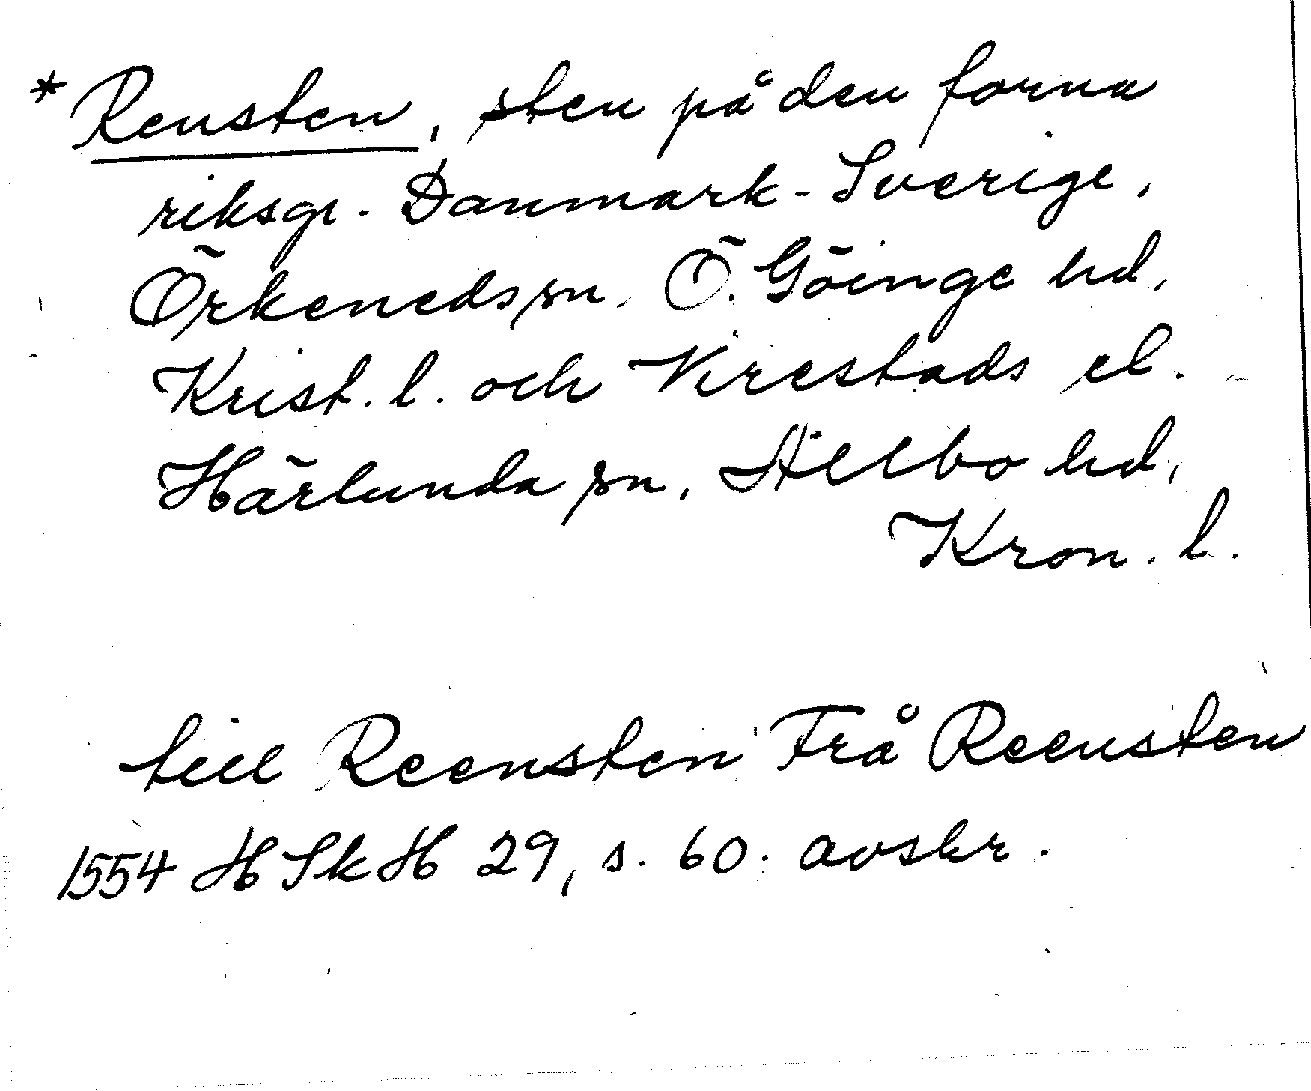 * Rensten, sten på den forna
riksgr. Danmark-Sverige,
Örkeneds sn. Ö. Göinge hd,
Krist. l. och Virestads el.
Härlunda sn, Allbo hd,
Kron. l.
till Reensten Frå Reensten
1554 HSkH 29, s. 60. avskr.